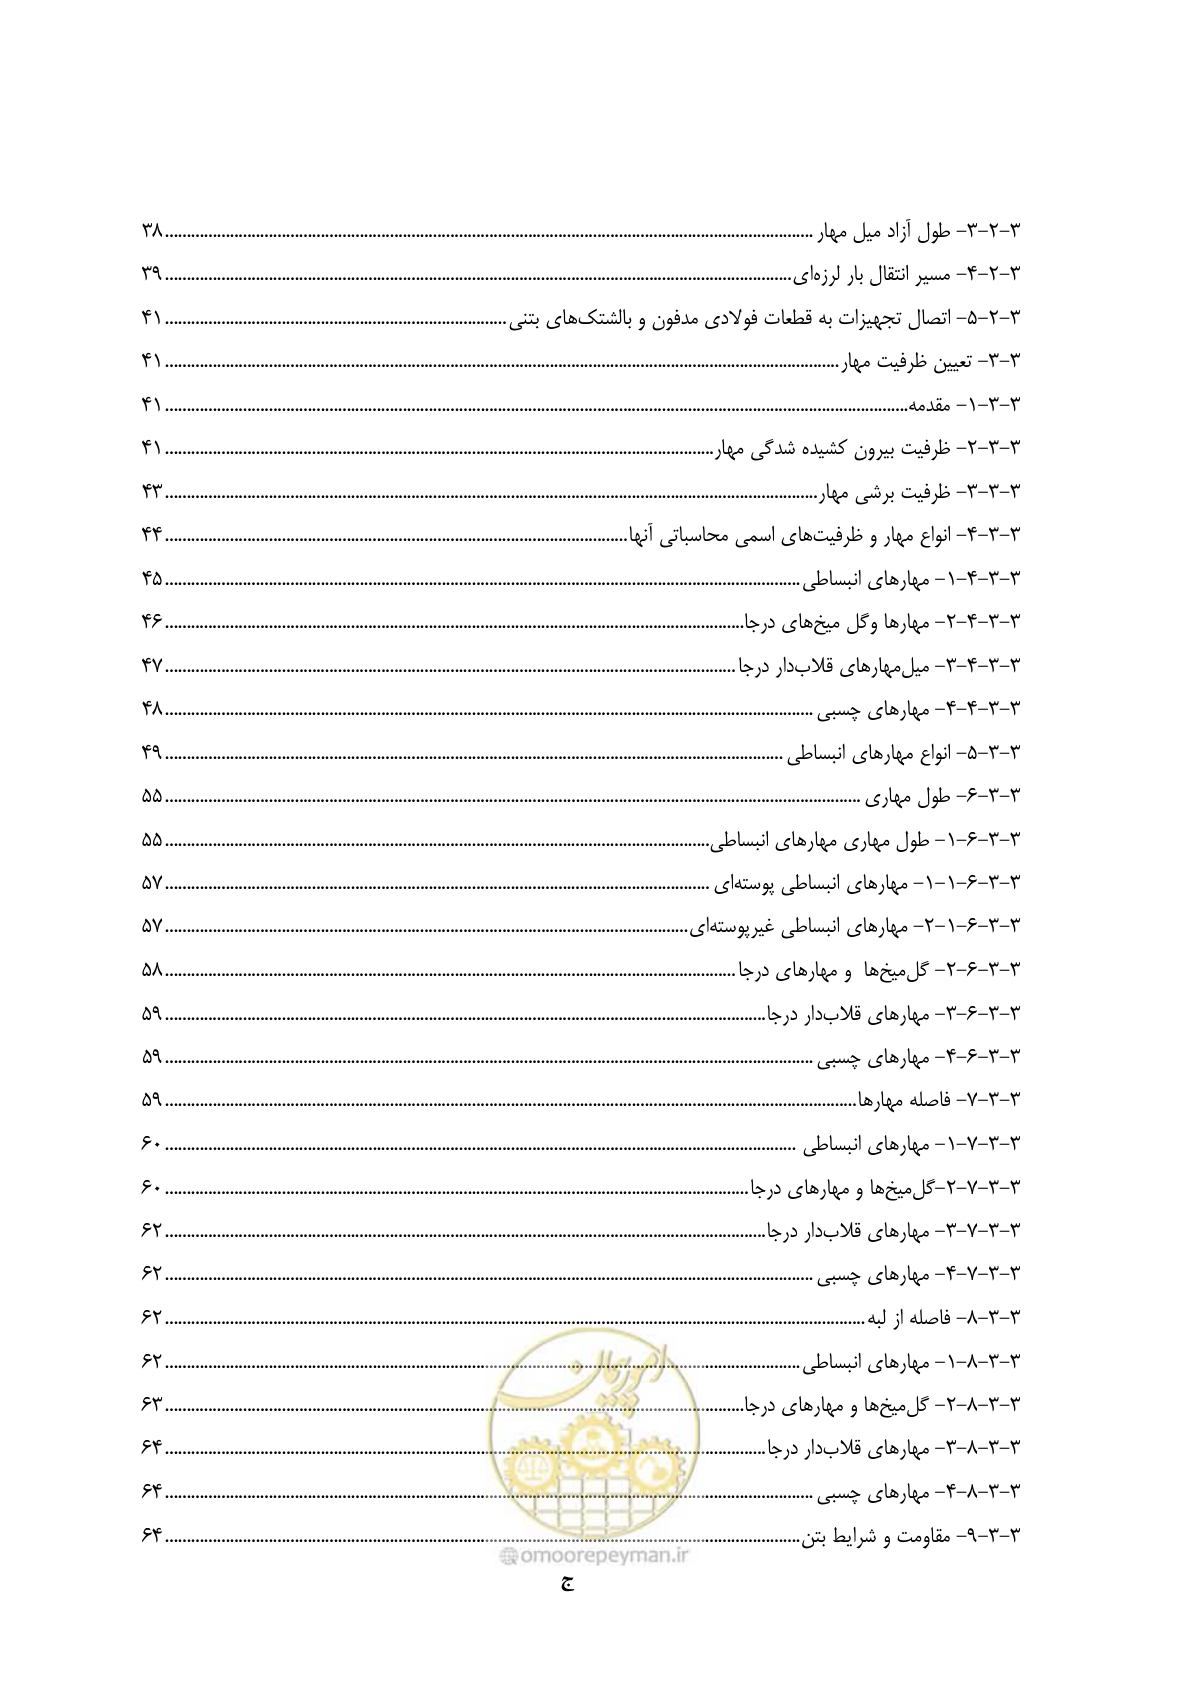 ۳-۲-۳- طول آزاد میل مهار ........ ۳۸
۳-۲-۴- مسیر انتقال بار لرزه‌ای ........ ۳۹
۳-۲-۵- اتصال تجهیزات به قطعات فولادی مدفون و بالشتک‌های بتنی ........ ۴۱
۳-۳- تعیین ظرفیت مهار ........ ۴۱
۳-۳-۱- مقدمه ........ ۴۱
۳-۳-۲- ظرفیت بیرون کشیده شدگی مهار ........ ۴۱
۳-۳-۳- ظرفیت برشی مهار ........ ۴۳
۳-۳-۴- انواع مهار و ظرفیت‌های اسمی محاسباتی آنها ........ ۴۴
۳-۳-۴-۱- مهارهای انبساطی ........ ۴۵
۳-۳-۴-۲- مهارها وگل میخ‌های درجا ........ ۴۶
۳-۳-۴-۳- میل‌مهارهای قلاب‌دار درجا ........ ۴۷
۳-۳-۴-۴- مهارهای چسبی ........ ۴۸
۳-۳-۵- انواع مهارهای انبساطی ........ ۴۹
۳-۳-۶- طول مهاری ........ ۵۵
۳-۳-۶-۱- طول مهاری مهارهای انبساطی ........ ۵۵
۳-۳-۶-۱-۱- مهارهای انبساطی پوسته‌ای ........ ۵۷
۳-۳-۶-۱-۲- مهارهای انبساطی غیرپوسته‌ای ........ ۵۷
۳-۳-۶-۲- گل‌میخ‌ها و مهارهای درجا ........ ۵۸
۳-۳-۶-۳- مهارهای قلاب‌دار درجا ........ ۵۹
۳-۳-۶-۴- مهارهای چسبی ........ ۵۹
۳-۳-۷- فاصله مهارها ........ ۵۹
۳-۳-۷-۱- مهارهای انبساطی ........ ۶۰
۳-۳-۷-۲-گل‌میخ‌ها و مهارهای درجا ........ ۶۰
۳-۳-۷-۳- مهارهای قلاب‌دار درجا ........ ۶۲
۳-۳-۷-۴- مهارهای چسبی ........ ۶۲
۳-۳-۸- فاصله از لبه ........ ۶۲
۳-۳-۸-۱- مهارهای انبساطی ........ ۶۲
۳-۳-۸-۲- گل‌میخ‌ها و مهارهای درجا ........ ۶۳
۳-۳-۸-۳- مهارهای قلاب‌دار درجا ........ ۶۴
۳-۳-۸-۴- مهارهای چسبی ........ ۶۴
۳-۳-۹- مقاومت و شرایط بتن ........ ۶۴
امور پیمان
@omoorepeyman.ir
ج